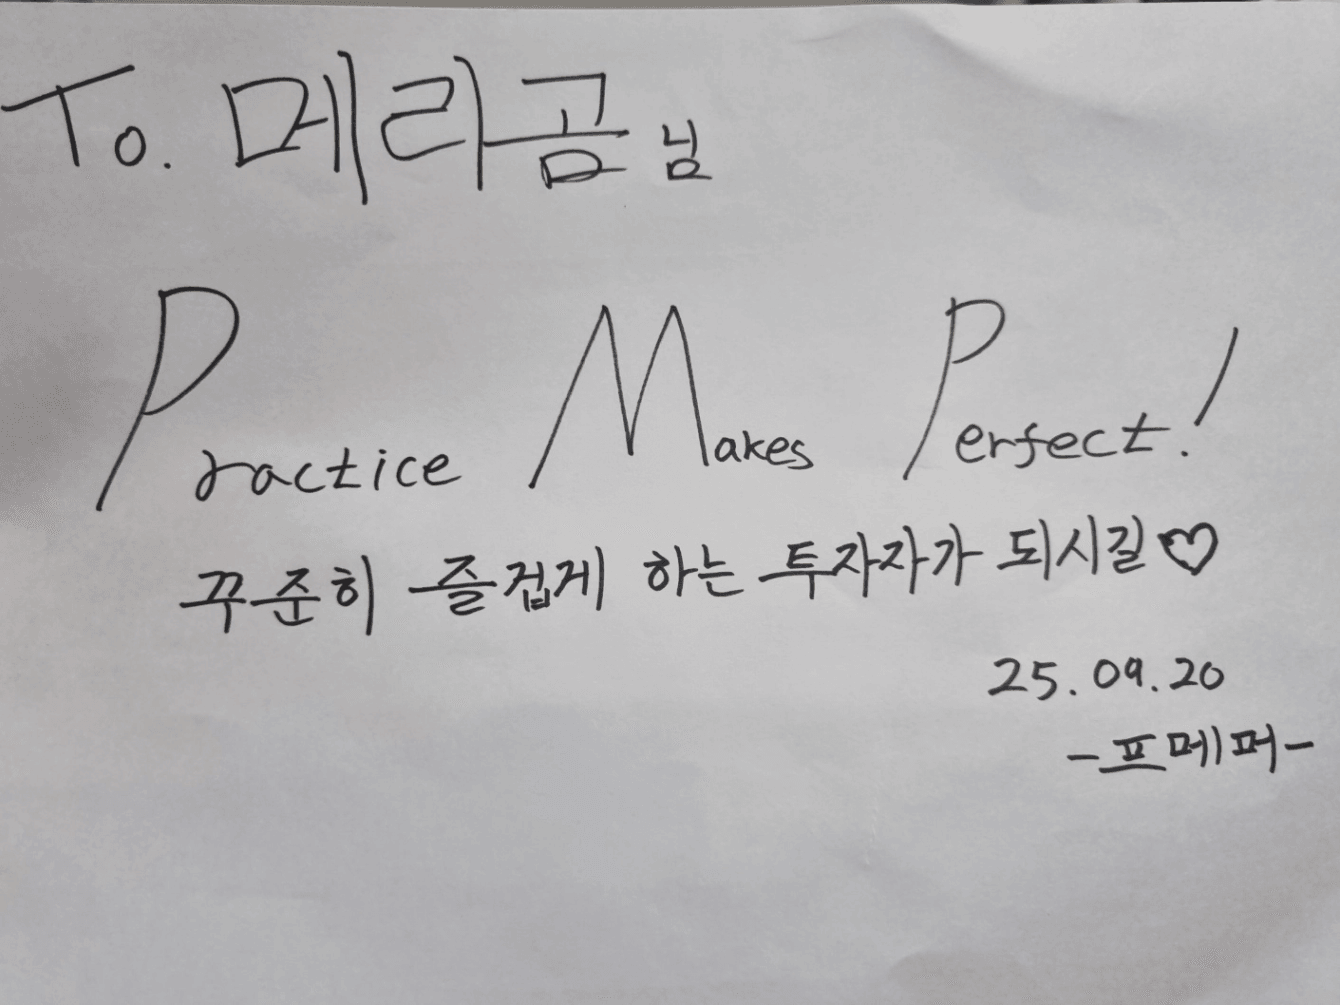 To. 메리곰님
Practice Makes Perfect!
꾸준히 즐겁게 하는 투자자가 되시길♡
25.09.20
-프메퍼-